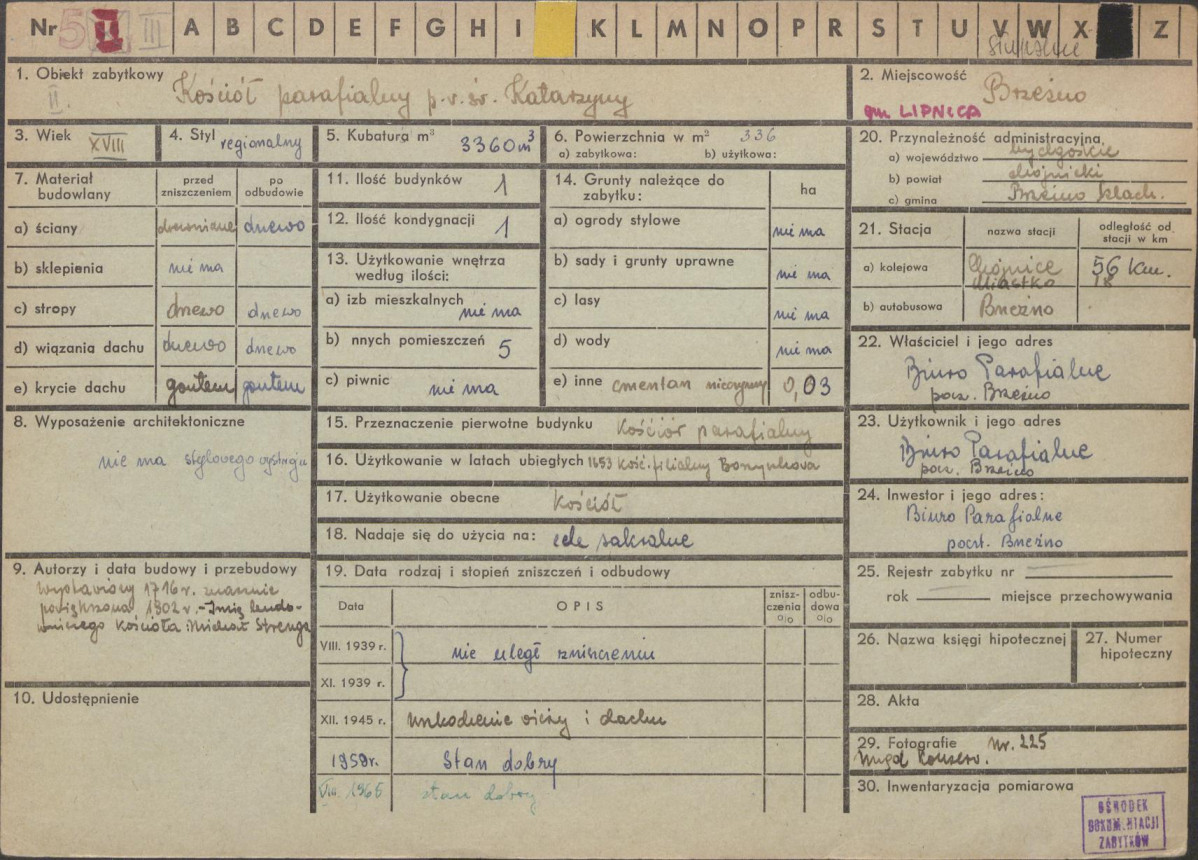 Nr 5 II III A B C D E F G H I K L M N O P R S T U V W X Z
1. Obiekt zabytkowy
II.
Kościół parafialny p.w. św. Katarzyny
2. Miejscowość
Brzeźno
gm. LIPNICA
3. Wiek
XVIII
4. Styl regionalny
5. Kubatura m³
3360 m³
6. Powierzchnia w m² 336
a) zabytkowa: b) użytkowa:
20. Przynależność administracyjna
a) województwo bydgoskie
b) powiat chojnicki
c) gmina Brzeźno szlach.
7. Materiał budowlany
przed zniszczeniem
po odbudowie
a) ściany drewniane drzewo
b) sklepienia nie ma
c) stropy drzewo drzewo
d) wiązania dachu drzewo drzewo
e) krycie dachu gontem gontem
11. Ilość budynków 1
12. Ilość kondygnacji 1
13. Użytkowanie wnętrza
według ilości:
a) izb mieszkalnych nie ma
b) nnych pomieszczeń 5
c) piwnic nie ma
14. Grunty należące do
zabytku:
ha
a) ogrody stylowe nie ma
b) sady i grunty uprawne nie ma
c) lasy nie ma
d) wody nie ma
e) inne cmentarz nieczynny 0,03
21. Stacja
nazwa stacji
odległość od
stacji w km
a) kolejowa Chojnice 56 km.
Miastko 18
b) autobusowa Brzeźno
22. Właściciel i jego adres
Biuro Parafialne
pocz. Brzeźno
8. Wyposażenie architektoniczne
nie ma stylowego wystroju
15. Przeznaczenie pierwotne budynku Kościół parafialny
16. Użytkowanie w latach ubiegłych 1653 Kość. filialny Borzyszkowa
17. Użytkowanie obecne Kościół
18. Nadaje się do użycia na: cele sakralne
23. Użytkownik i jego adres
Biuro Parafialne
pocz. Brzeźno
24. Inwestor i jego adres:
Biuro Parafialne
poczt. Brzeźno
9. Autorzy i data budowy i przebudowy
Wystawiony 1716 r. znacznie
powiększona 1902 r. - Imię budo-
wniczego Kościoła: Michał Strenga
10. Udostępnienie
19. Data rodzaj i stopień zniszczeń i odbudowy
Data
OPIS
znisz-
czenia
o/o
odbu-
dowa
o/o
VIII. 1939 r.
nie uległ zniszczeniu
XI. 1939 r.
XII. 1945 r. uszkodzenie wieży i dachu
1959 r. Stan dobry
VIII 1966 stan dobry
25. Rejestr zabytku nr
rok miejsce przechowywania
26. Nazwa księgi hipotecznej
27. Numer
hipoteczny
28. Akta
29. Fotografie Nr. 225
Urząd Konserw.
30. Inwentaryzacja pomiarowa
OŚRODEK
DOKUMENTACJI
ZABYTKÓW